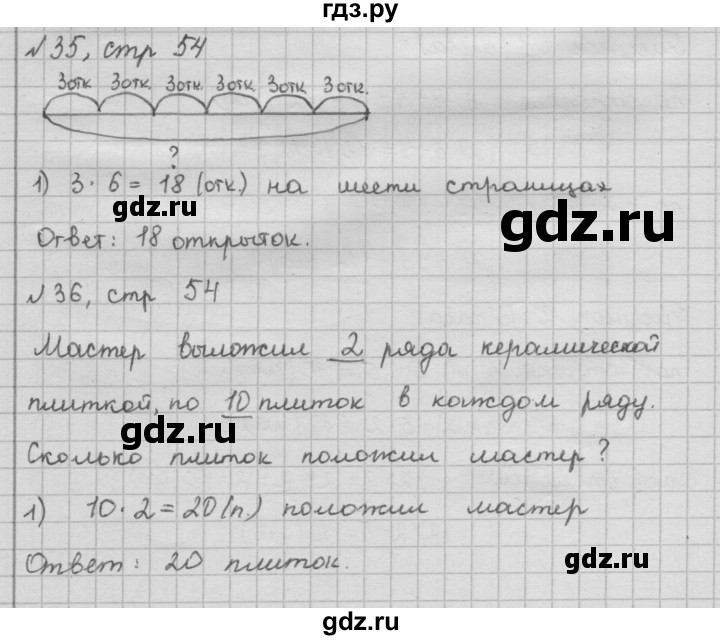 гдз.ру
№35, стр 54
3 отк. 3 отк. 3 отк. 3 отк. 3 отк. 3 отк.
?
1) 3 · 6 = 18 (отк.) на шести страницах
gdz.ru
gdz.ru
Ответ: 18 открыток.
№36, стр 54
Мастер выложил 2 ряда керамической
плиткой, по 10 плиток в каждом ряду.
gdz.ru
Сколько плиток положил мастер?
1) 10 · 2 = 20 (п.) положил мастер
Ответ: 20 плиток.
gdz.ru
gdz.ru